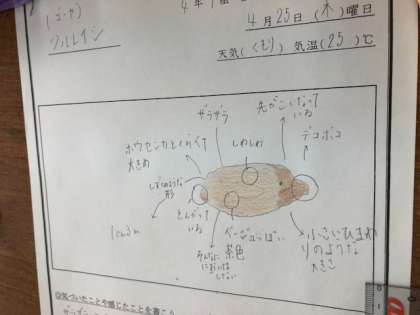 (ゴーヤ)
ツルレイシ
4年
4月25日(木)曜日
天気(くもり) 気温(25)℃
ザラザラ
先がこくなって
いる
デコボコ
ホウセンカとくらべて
大きめ
しわしわ
しずくのような
形
とんがって
いる
1cm3mm
そんなに
においは
しない
ベージュっぽい
茶色
小さいひまわ
りのような
大きさ
気づいたことや感じたことを書こう